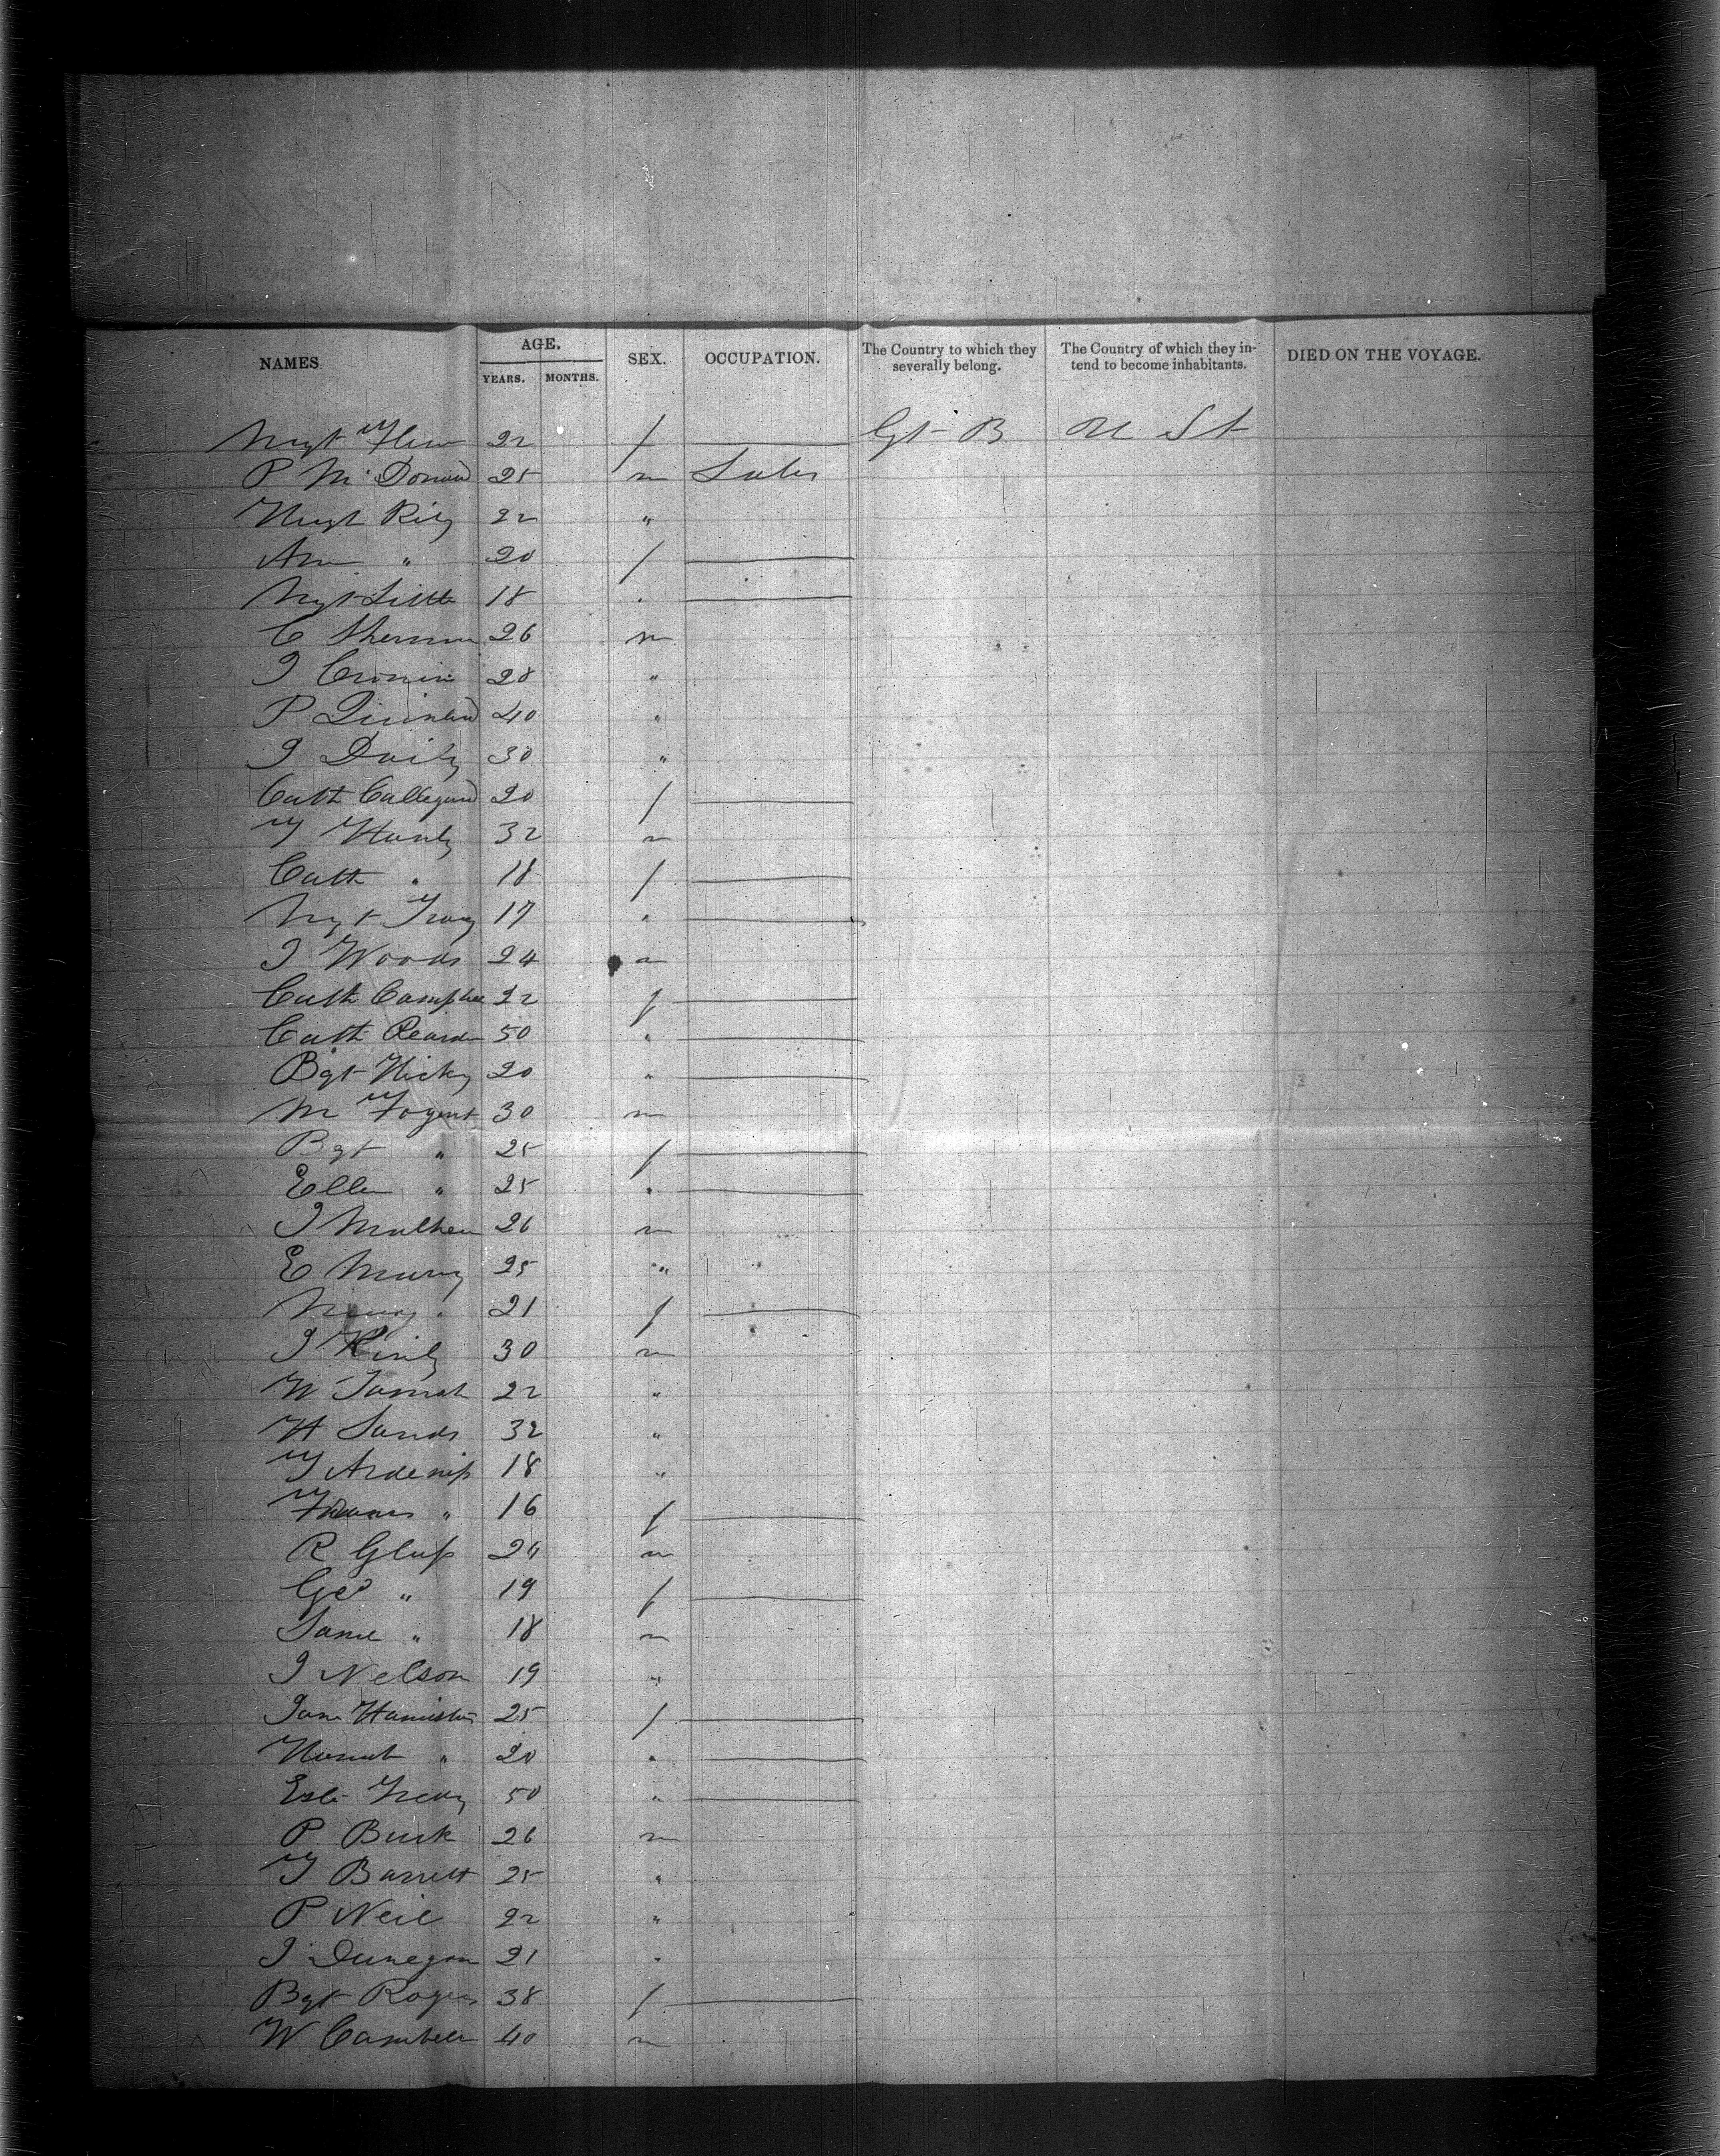 NAMES. AGE. SEX. OCCUPATION. The Country to which they severally belong. The Country of which they intend to become inhabitants. DIED ON THE VOYAGE.
YEARS. MONTHS.
Mgt 22 f — Gt B U St
P McDonnd 25 m
Hugh Rily 22 "
Ann " 20 f —
Mgt Little 18 " —
C Sherman 26 m
J Cronin 28 "
P Quinland 40 "
J Daily 30 "
Cath 20 f —
T Hanly 32 m
Cath " 18 f —
Mgt 17 " —
J Woods 24 m
Cath Campbell 22 f —
Cath Reardn 50 " —
Bgt Hicky 20 " —
M 30 m
Bgt " 25 f —
Ellen " 25 " —
J Mulhern 26 m
E Murry 25 "
Mary " 21 f —
J 30 m
W 22 "
H Sands 32 "
T 18 "
" 16 f —
R Glass 24 m
Geo " 19 f —
" 18 m
J Nelson 19 "
Jane 25 f —
" 20 " —
50 " —
P Burk 26 m
T Barrett 25 "
P Neil 22 "
J Dunegan 21 "
Bgt Rogers 38 f —
W Cambell 40 m